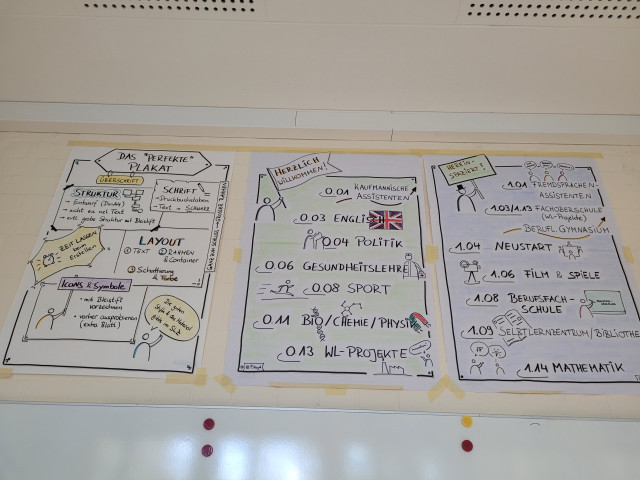 DAS "PERFEKTE"
PLAKAT
ÜBERSCHRIFT
STRUKTUR
- Entwurf (DinA4)
- nicht zu viel Text
- erst grobe Struktur mit Bleistift
SCHRIFT
- Druckbuchstaben
- Text = SCHWARZ
ZEIT LASSEN
beim
Erstellen
LAYOUT
① TEXT
② RAHMEN
& Container
③ Schattierung
& Farbe
Icons & Symbole
- mit Bleistift
vorzeichnen
- vorher ausprobieren
(extra Blatt)
HERZLICH
WILLKOMMEN!
0.01 KAUFMÄNNISCHE
ASSISTENTEN
0.03 ENGLISCH
0.04 POLITIK
0.06 GESUNDHEITSLEHRE
0.08 SPORT
0.11 BIO/CHEMIE/PHYSIK
0.13 WL-PROJEKTE
HEREIN-
SPAZIERT!
1.01 FREMDSPRACHEN-
ASSISTENTEN
1.03/1.13 FACHOBERSCHULE
(WL-Projekte)
BERUFL. GYMNASIUM
1.04 NEUSTART
1.06 FILM & SPIELE
1.08 BERUFSFACH-
SCHULE
1.09 SELBSTLERNZENTRUM/BIBLIOTHE
1.14 MATHEMATIK